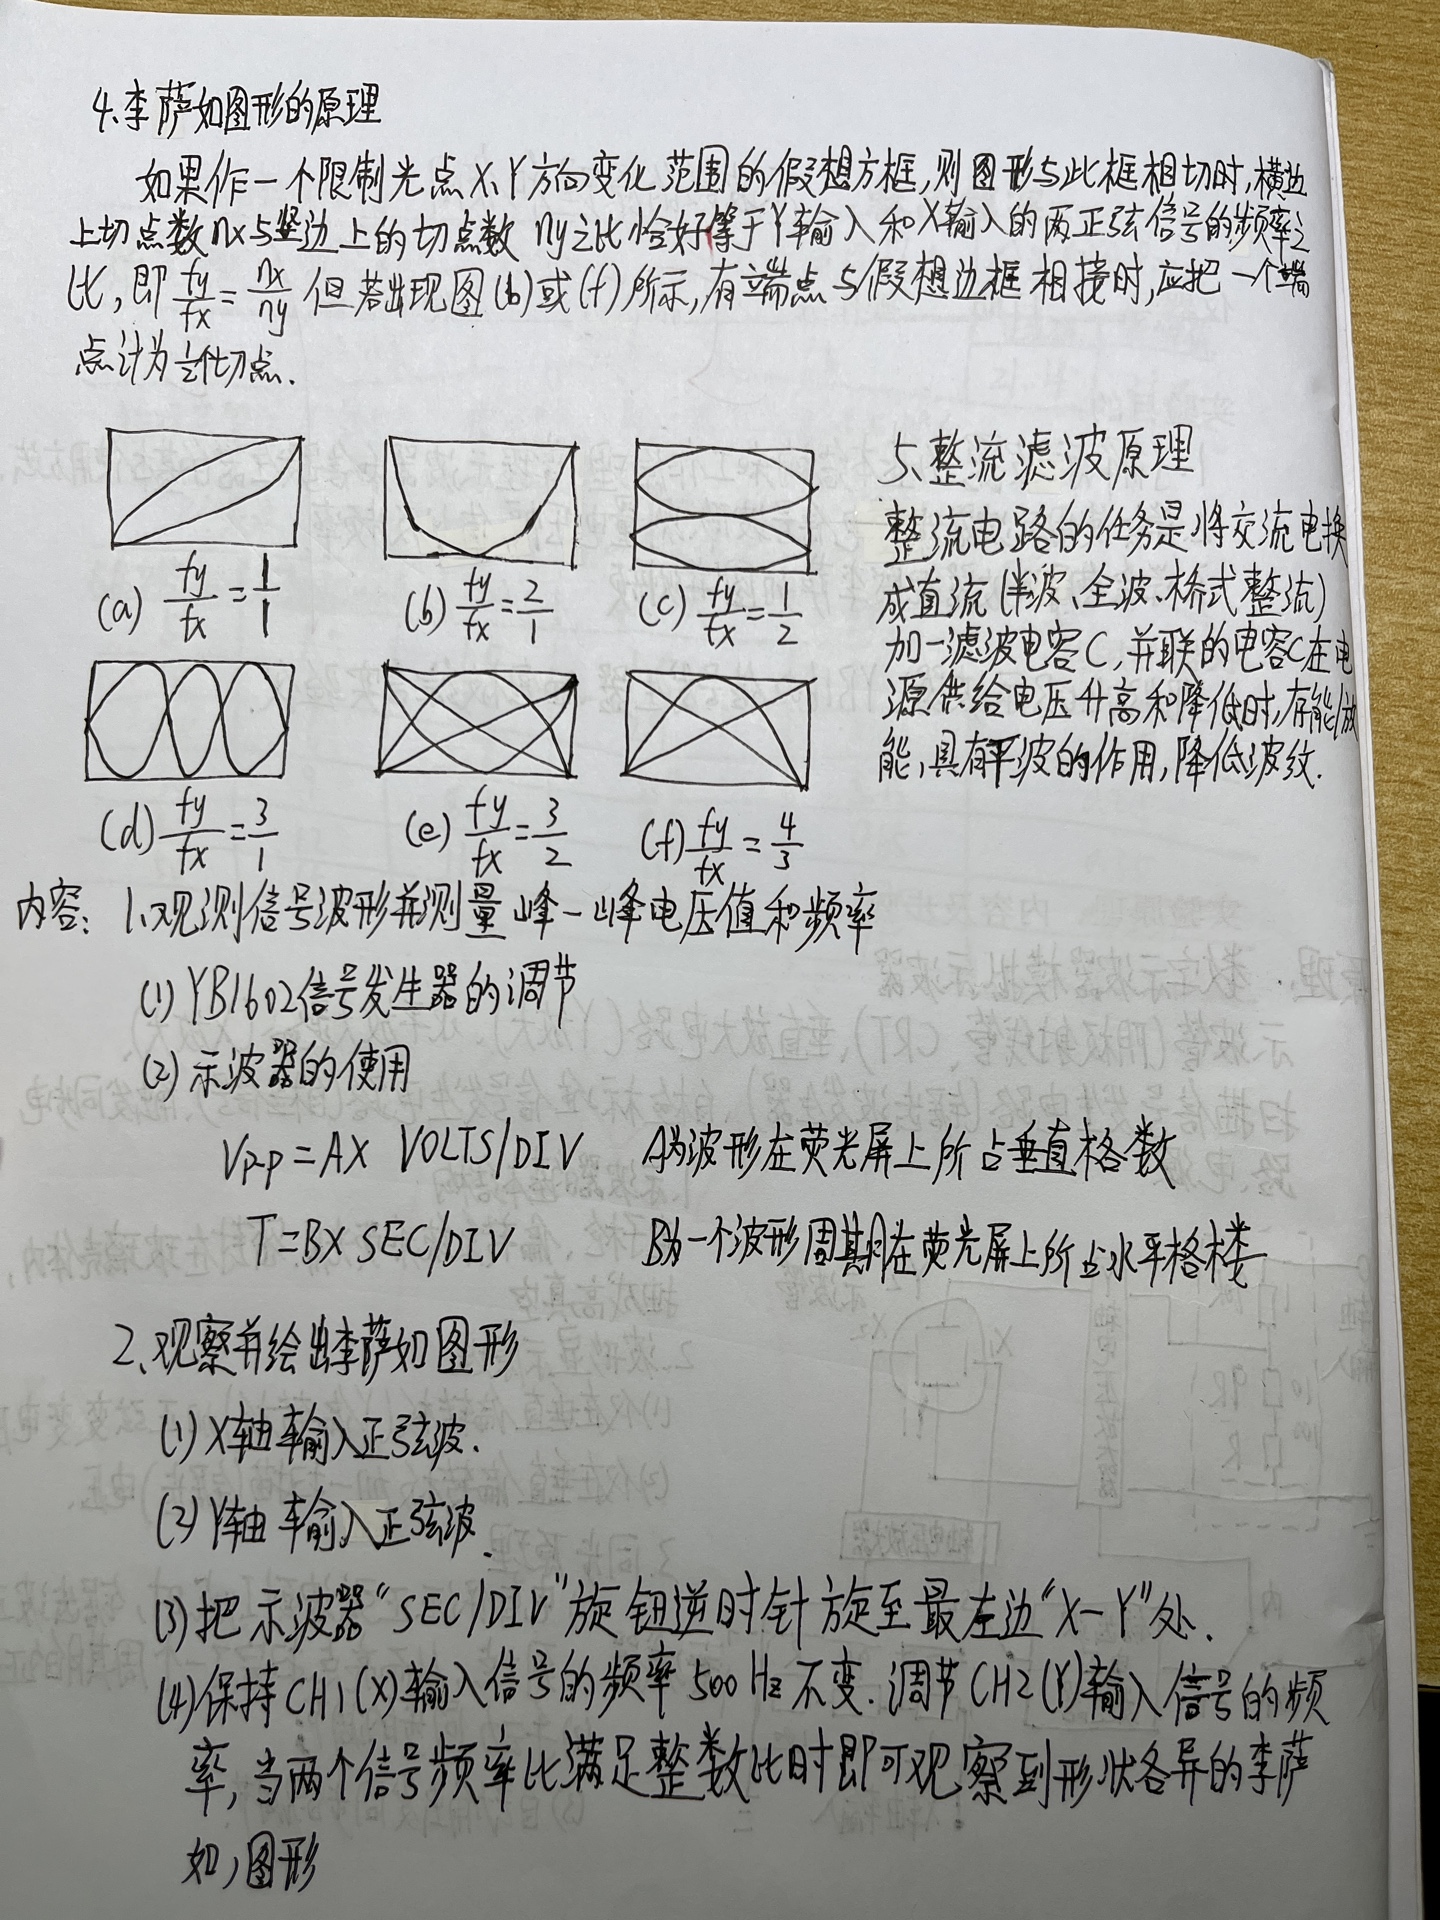 4.李萨如图形的原理
如果作一个限制光点X、Y方向变化范围的假想方框,则图形与此框相切时,横边
上切点数nx与竖边上的切点数ny之比恰好等于Y输入和X输入的两正弦信号的频率之
比,即fy/fx=nx/ny但若出现图(b)或(f)所示,有端点与假想边框相接时,应把一个端
点计为1/2个切点.
(a) fy/fx=1/1
(b) fy/fx=2/1
(c) fy/fx=1/2
(d) fy/fx=3/1
(e) fy/fx=3/2
(f) fy/fx=4/3
5.整流滤波原理
整流电路的任务是将交流电换
成直流(半波、全波、桥式整流)
加一滤波电容C,并联的电容C在电
源供给电压升高和降低时,存能/放
能,具有平波的作用,降低波纹.
内容: 1.观测信号波形并测量峰-峰电压值和频率
(1)YB1602信号发生器的调节
(2)示波器的使用
Vp-p=A× VOLTS/DIV A为波形在荧光屏上所占垂直格数
T=B× SEC/DIV B为一个波形周期在荧光屏上所占水平格楼
2.观察并绘出李萨如图形
(1)X轴输入正弦波.
(2)Y轴输入正弦波.
(3)把示波器“SEC/DIV”旋钮逆时针旋至最左边“X-Y”处.
(4)保持CH1(X)输入信号的频率500Hz不变.调节CH2(Y)输入信号的频
率,当两个信号频率比满足整数比时即可观察到形状各异的李萨
如,图形